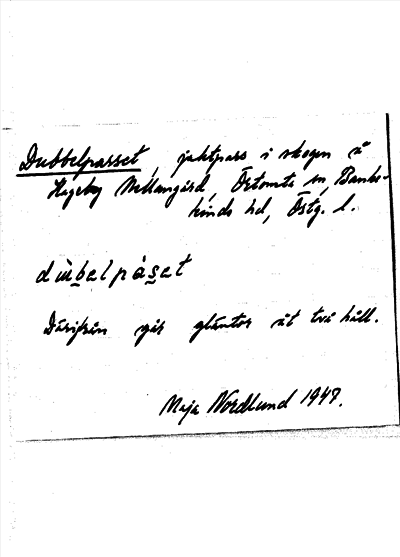 Dubbelpasset, jaktpass i skogen å
Hageby Mellangård, Örtomta sn, Banke-
kinds hd, Östg. l.
dùbelpáset
Därifrån går gläntor åt två håll.
Maja Nordlund 1947.